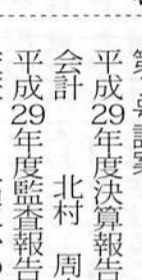 平成29年度決算報告
会計 北村 周
平成29年度監査報告